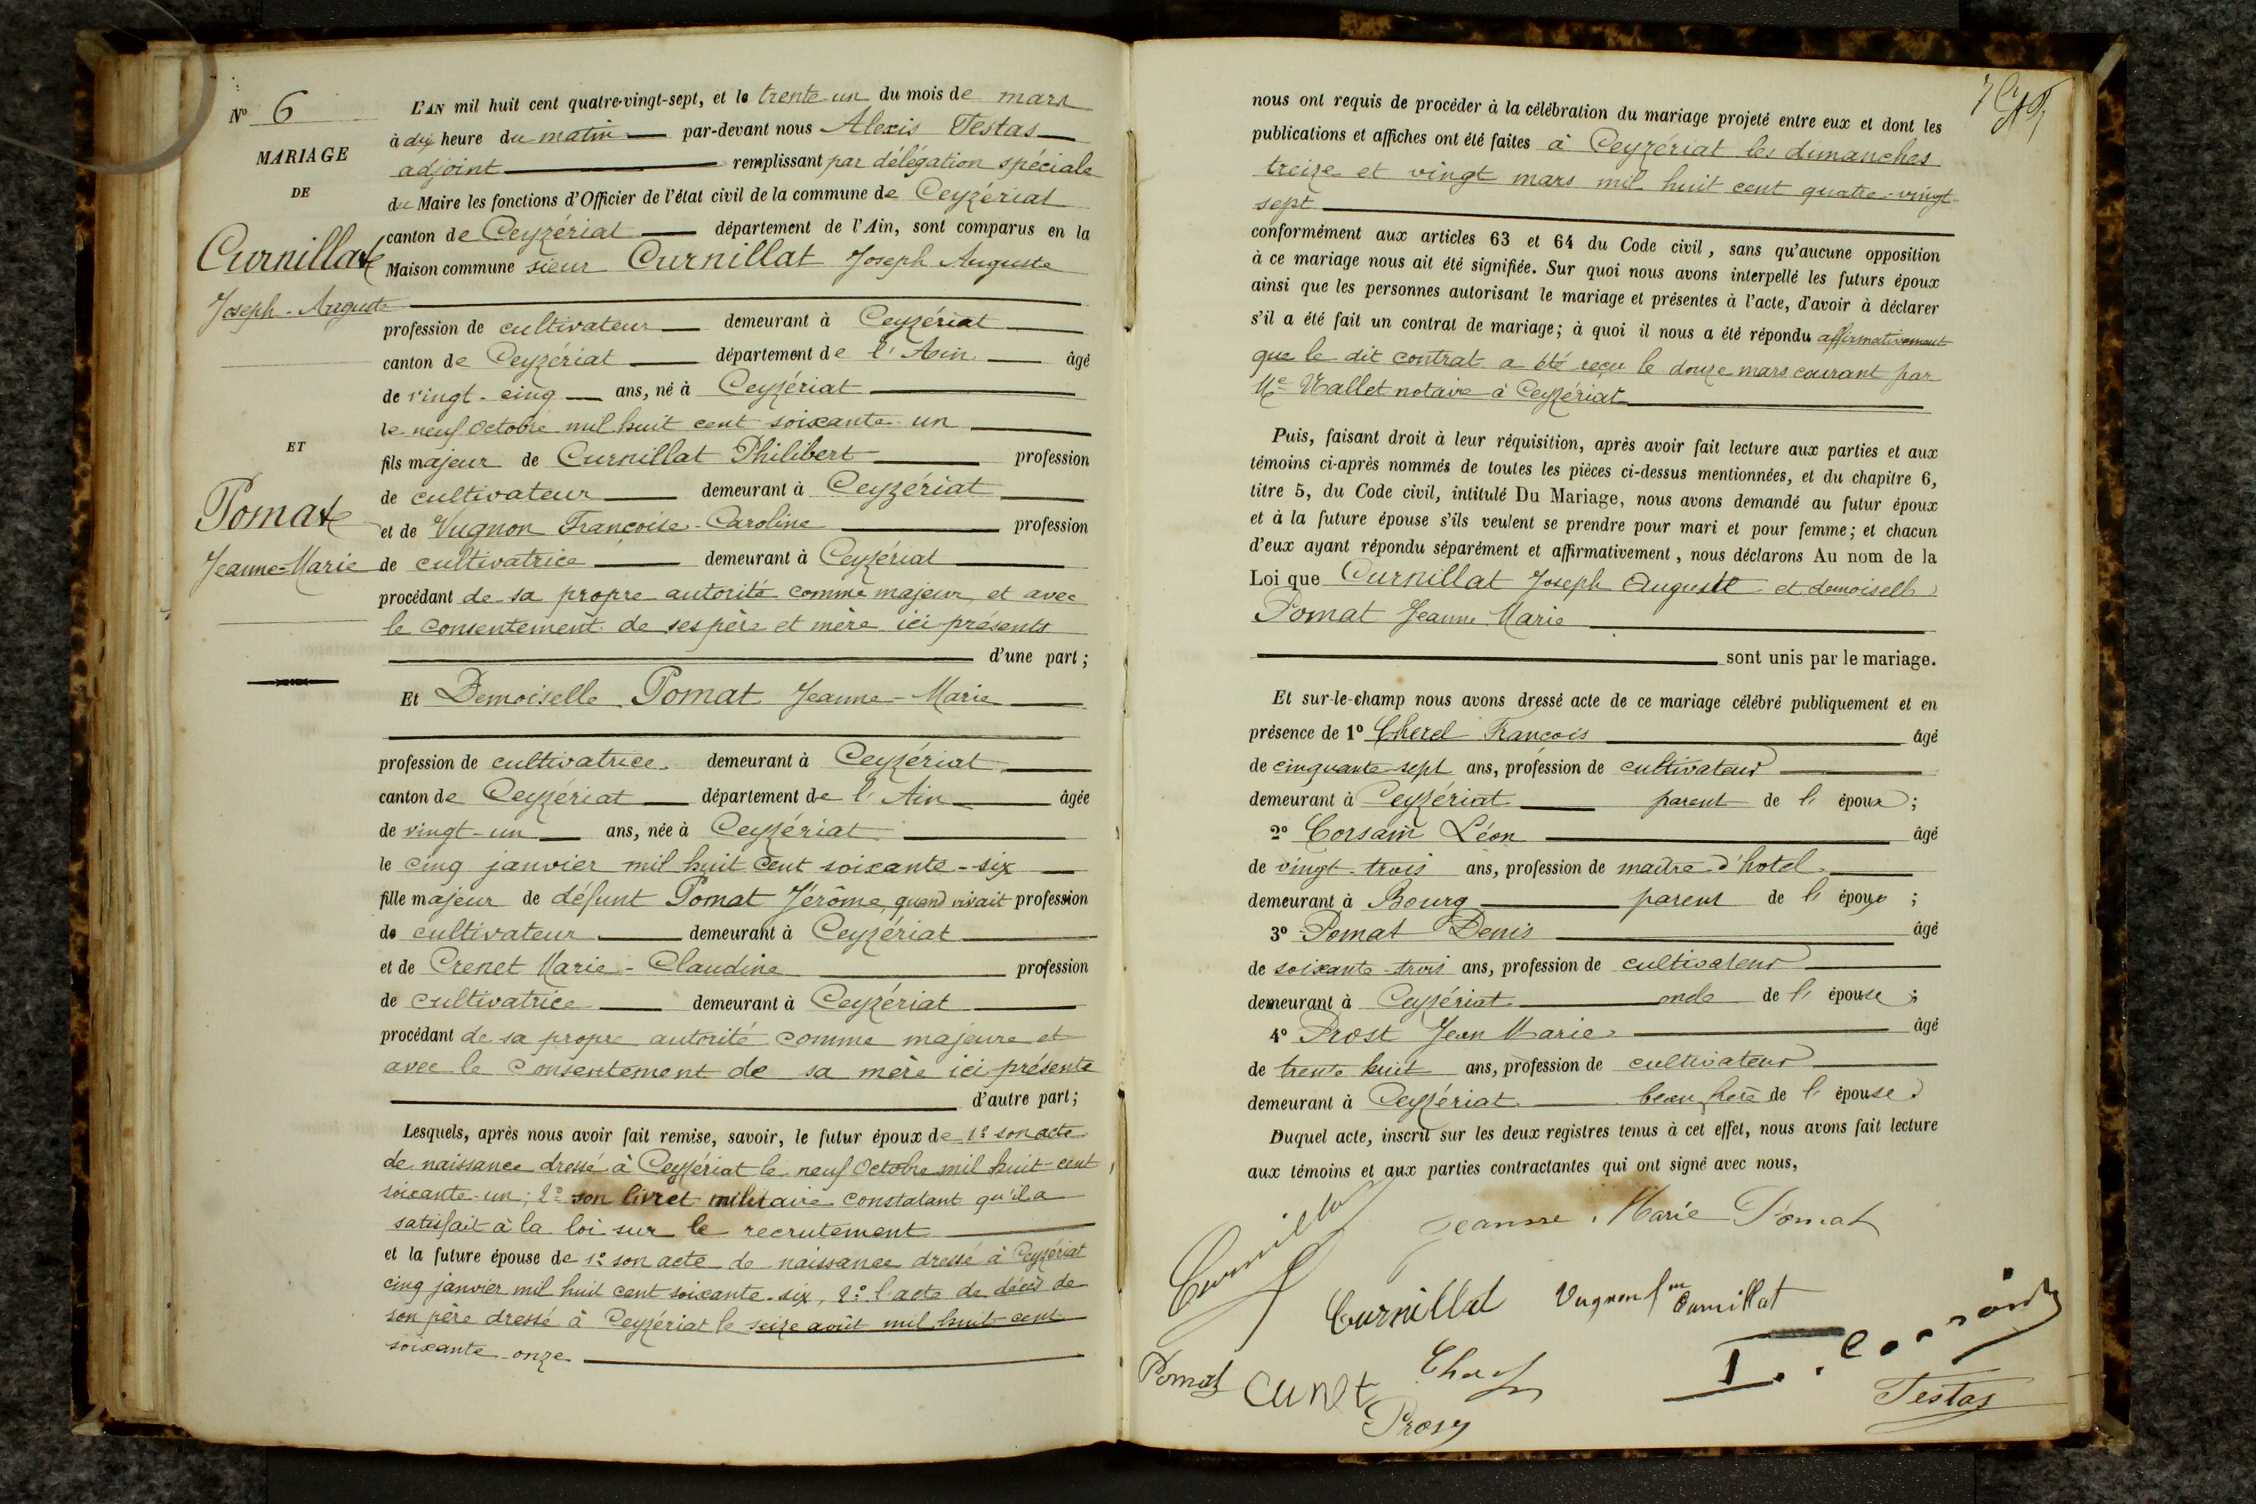 N° 6
MARIAGE
DE
Curnillat
Joseph-Auguste
ET
Pomat
Jeanne-Marie
L'AN mil huit cent quatre-vingt-sept, et le trente-un du mois de mars
à dix heure du matin par-devant nous Alexis Testas
adjoint remplissant par délégation spéciale
du Maire les fonctions d'Officier de l'état civil de la commune de Ceyzériat
canton de Ceyzériat département de l'Ain, sont comparus en la
Maison commune sieur Curnillat Joseph Auguste
profession de cultivateur demeurant à Ceyzériat
canton de Ceyzériat département de l'Ain âgé
de vingt-cinq ans, né à Ceyzériat
le neuf Octobre mil huit cent soixante un
fils majeur de Curnillat Philibert profession
de cultivateur demeurant à Ceyzériat
et de Vugnon Françoise-Caroline profession
de cultivatrice demeurant à Ceyzériat
procédant de sa propre autorité comme majeur et avec
le consentement de ses père et mère ici présents
d'une part;
Et Demoiselle Pomat Jeanne-Marie
profession de cultivatrice demeurant à Ceyzériat
canton de Ceyzériat département de l'Ain âgée
de vingt-un ans, née à Ceyzériat
le cinq janvier mil huit cent soixante-six
fille majeur de défunt Pomat Jérôme, quand vivait profession
de cultivateur demeurant à Ceyzériat
et de Crenet Marie-Claudine profession
de cultivatrice demeurant à Ceyzériat
procédant de sa propre autorité comme majeure et
avec le consentement de sa mère ici présente
d'autre part;
Lesquels, après nous avoir fait remise, savoir, le futur époux de 1° son acte
de naissance dressé à Ceyzériat le neuf Octobre mil huit cent
soixante-un; 2° son livret militaire constatant qu'il a
satisfait à la loi sur le recrutement
et la future épouse de 1° son acte de naissance dressé à Ceyzériat
cinq janvier mil huit cent soixante-six, 2° l'acte de décès de
son père dressé à Ceyzériat le seize août mil huit cent
soixante-onze
nous ont requis de procéder à la célébration du mariage projeté entre eux et dont les
publications et affiches ont été faites à Ceyzériat les dimanches
treize et vingt mars mil huit cent quatre-vingt-
sept
conformément aux articles 63 et 64 du Code civil, sans qu'aucune opposition
à ce mariage nous ait été signifiée. Sur quoi nous avons interpellé les futurs époux
ainsi que les personnes autorisant le mariage et présentes à l'acte, d'avoir à déclarer
s'il a été fait un contrat de mariage; à quoi il nous a été répondu affirmativement
que le dit contrat a été reçu le douze mars courant par
Me Vallet notaire à Ceyzériat
Puis, faisant droit à leur réquisition, après avoir fait lecture aux parties et aux
témoins ci-après nommés de toutes les pièces ci-dessus mentionnées, et du chapitre 6,
titre 5, du Code civil, intitulé Du Mariage, nous avons demandé au futur époux
et à la future épouse s'ils veulent se prendre pour mari et pour femme; et chacun
d'eux ayant répondu séparément et affirmativement, nous déclarons Au nom de la
Loi que Curnillat Joseph Auguste et demoiselle
Pomat Jeanne Marie
sont unis par le mariage.
Et sur-le-champ nous avons dressé acte de ce mariage célébré publiquement et en
présence de 1° Cherel François âgé
de cinquante sept ans, profession de cultivateur
demeurant à Ceyzériat parent de l'époux;
2° Corsain Léon âgé
de vingt-trois ans, profession de maître d'hotel
demeurant à Bourg parent de l'époux;
3° Pomat Denis âgé
de soixante-trois ans, profession de cultivateur
demeurant à Ceyzériat oncle de l'épouse;
4° Prost Jean Marie âgé
de trente huit ans, profession de cultivateur
demeurant à Ceyzériat beau frère de l'épouse
Duquel acte, inscrit sur les deux registres tenus à cet effet, nous avons fait lecture
aux témoins et aux parties contractantes qui ont signé avec nous,
Curnillat
Jeanne Marie Pomat
Curnillat
Vugnon fme Curnillat
Pomat
Testas